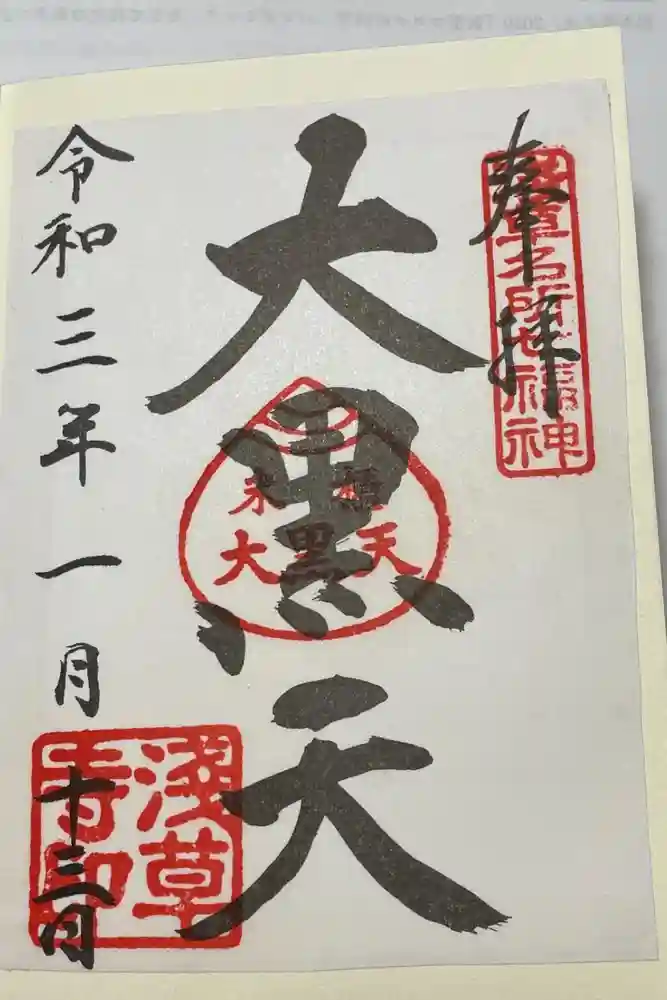 奉拝
浅草名所七福神
大黒天
米櫃
大黒天
令和三年一月十三日
浅草
寺印